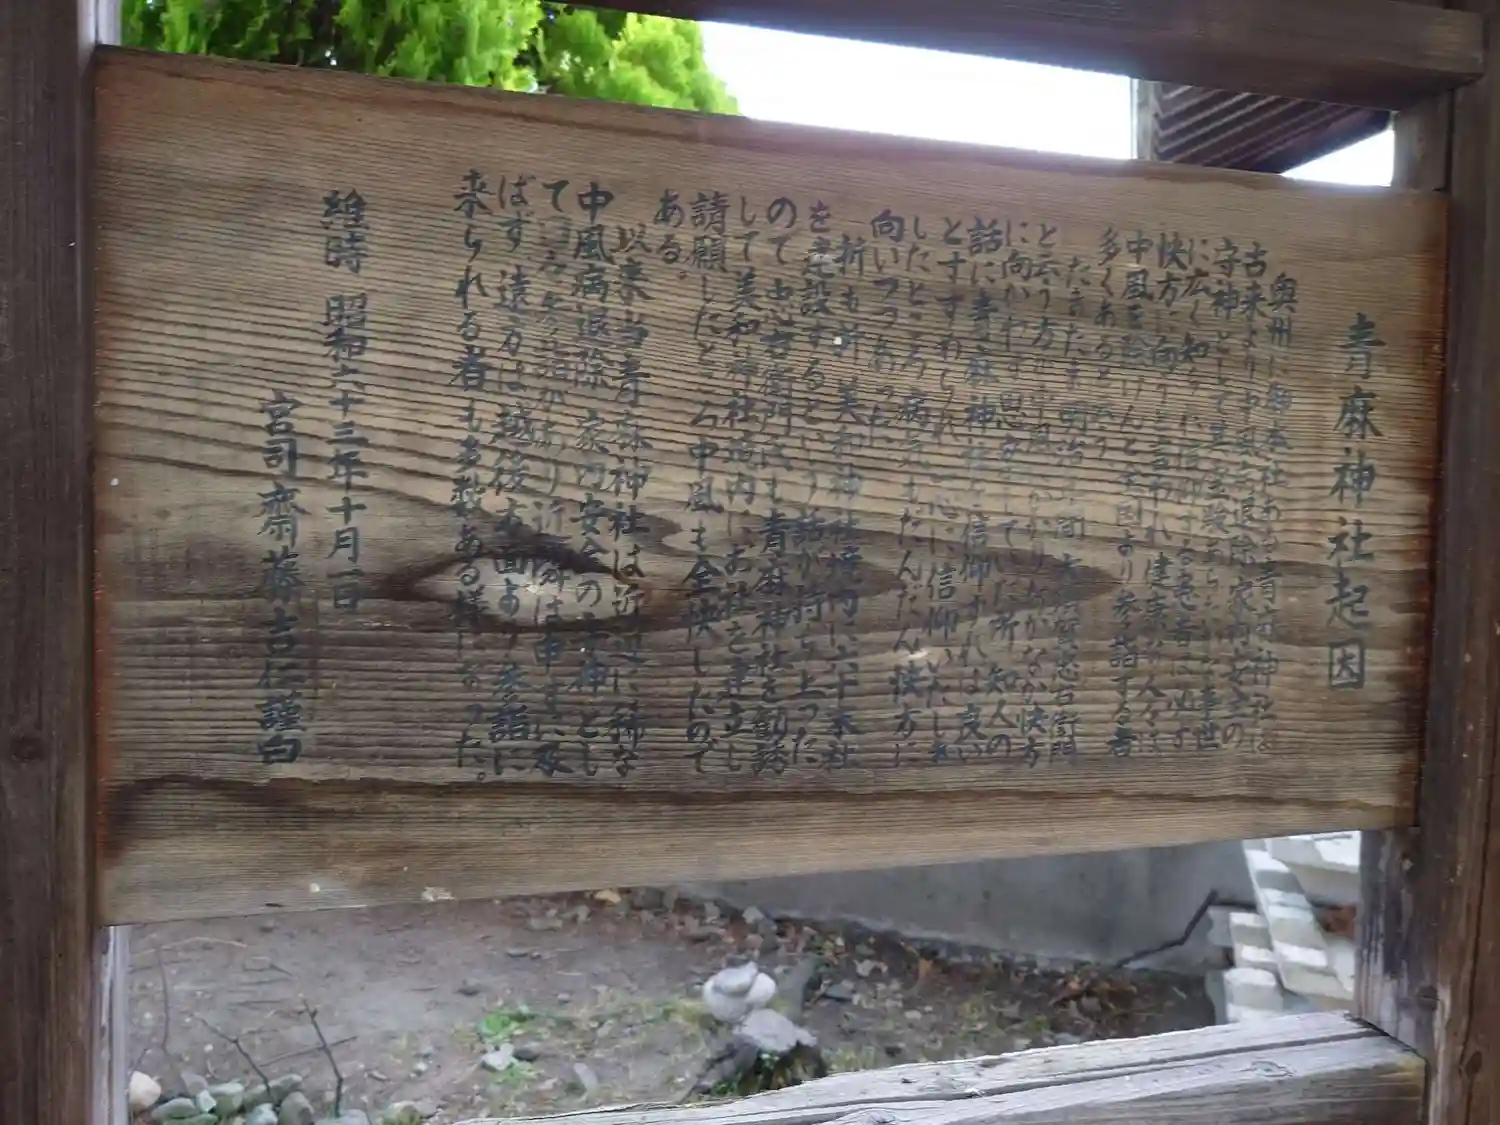 青麻神社起因
奥州に御本社のある青麻神社は
古来より中風病退除家内安全の
守神として其霊験あらたかで世
に広く知られ信仰する患者は必ず
快方に向うと言われ健康な人々は
中風を除けんと全国より参詣する者
多くあると云う。
たまたま明治 間 右衛門
と云う方が中風 かかりなかなか快方
に向かわず思案していた所、知人の
話に青麻神社を信仰すれば良い
とすすめられ一心に信仰いたしま
したところ病気もだんだん快方に
向いつつあった。
折も折、美和神社境内に六十末社
を建設するという話が持ち上った
ので 右衛門氏も青麻神社を勧請
して美和神社境内にお社を建立し
請願したところ中風も全快したので
ある。
以来当青麻神社は近辺に稀な
中風病退除、家内安全の守神とし
て 参詣があり近隣は申すに及
ばず、遠方は越後方面より参詣に
来られる者も多数ある様になった。
維時 昭和六十三年十月一日
宮司 齋藤吉仁謹白